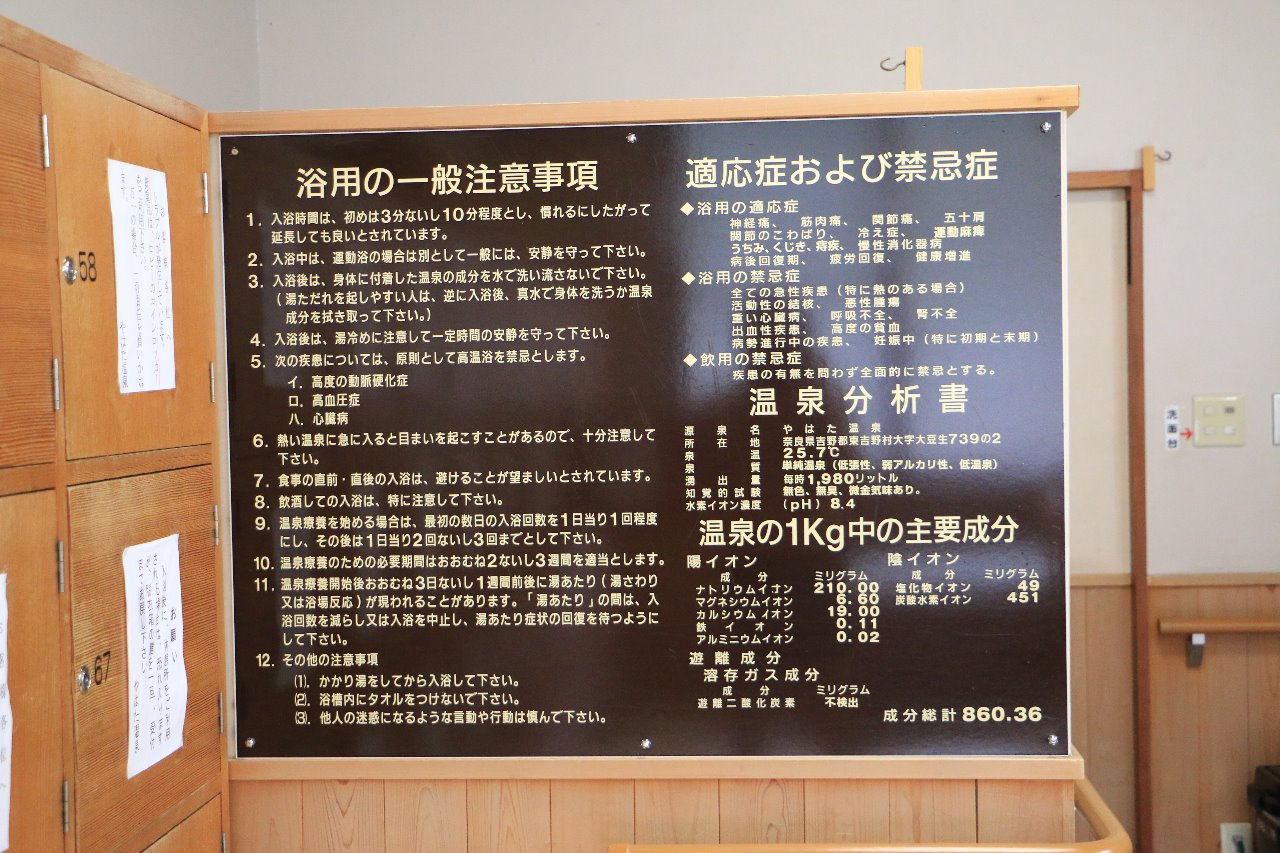 58
67
お願い
やはた温泉
やはた温泉
浴用の一般注意事項
1. 入浴時間は、初めは3分ないし10分程度とし、慣れるにしたがって
延長しても良いとされています。
2. 入浴中は、運動浴の場合は別として一般には、安静を守って下さい。
3. 入浴後は、身体に付着した温泉の成分を水で洗い流さないで下さい。
(湯ただれを起しやすい人は、逆に入浴後、真水で身体を洗うか温泉
成分を拭き取って下さい。)
4. 入浴後は、湯冷めに注意して一定時間の安静を守って下さい。
5. 次の疾患については、原則として高温浴を禁忌とします。
イ. 高度の動脈硬化症
ロ. 高血圧症
ハ. 心臓病
6. 熱い温泉に急に入ると目まいを起こすことがあるので、十分注意して
下さい。
7. 食事の直前・直後の入浴は、避けることが望ましいとされています。
8. 飲酒しての入浴は、特に注意して下さい。
9. 温泉療養を始める場合は、最初の数日の入浴回数を1日当り1回程度
にし、その後は1日当り2回ないし3回までとして下さい。
10. 温泉療養のための必要期間はおおむね2ないし3週間を適当とします。
11. 温泉療養開始後おおむね3日ないし1週間前後に湯あたり(湯さわり
又は浴場反応)が現われることがあります。「湯あたり」の間は、入
浴回数を減らし又は入浴を中止し、湯あたり症状の回復を待つように
して下さい。
12. その他の注意事項
(1). かかり湯をしてから入浴して下さい。
(2). 浴槽内にタオルをつけないで下さい。
(3). 他人の迷惑になるような言動や行動は慎んで下さい。
適応症および禁忌症
◆浴用の適応症
神経痛、 筋肉痛、 関節痛、 五十肩
関節のこわばり、 冷え症、 運動麻痺
うちみ、くじき、痔疾、 慢性消化器病
病後回復期、 疲労回復、 健康増進
◆浴用の禁忌症
全ての急性疾患(特に熱のある場合)
活動性の結核、 悪性腫瘍
重い心臓病、 呼吸不全、 腎不全
出血性疾患、 高度の貧血
病勢進行中の疾患、 妊娠中(特に初期と末期)
◆飲用の禁忌症
疾患の有無を問わず全面的に禁忌とする。
温泉分析書
源泉名 やはた温泉
所在地 奈良県吉野郡東吉野村大字大豆生739の2
泉温 25.7℃
泉質 単純温泉(低張性、弱アルカリ性、低温泉)
湧出量 毎時1,980リットル
知覚的試験 無色、無臭、微金気味あり。
水素イオン濃度 (pH) 8.4
温泉の1Kg中の主要成分
陽イオン 陰イオン
成分 ミリグラム 成分 ミリグラム
ナトリウムイオン 210.00 塩化物イオン 49
マグネシウムイオン 6.60 炭酸水素イオン 451
カルシウムイオン 19.00
鉄イオン 0.11
アルミニウムイオン 0.02
遊離成分
溶存ガス成分
成分 ミリグラム
遊離二酸化炭素 不検出
成分総計 860.36
洗面台